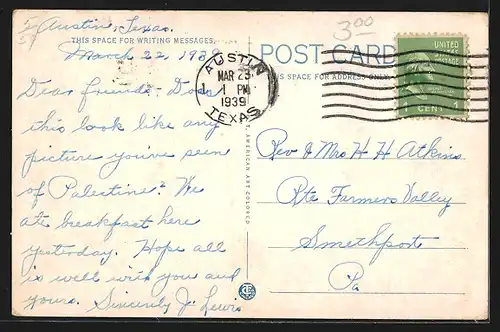 Austin, Texas.
THIS SPACE FOR WRITING MESSAGES.
March 22, 1939
Dear friends - Does
this look like any
picture you've seen
of Palestine? We
ate breakfast here
yesterday. Hope all
is well with you and
yours. Sincerely J. Lewis
3 00
POST CARD
THIS SPACE FOR ADDRESS ONLY.
AUSTIN
MAR 23
1 PM
1939
TEXAS
UNITED
STATES
POSTAGE
1 CENT 1
Rev & Mrs H H Atkins
Rte Farmers Valley
Smethport
Pa
ART COLORED